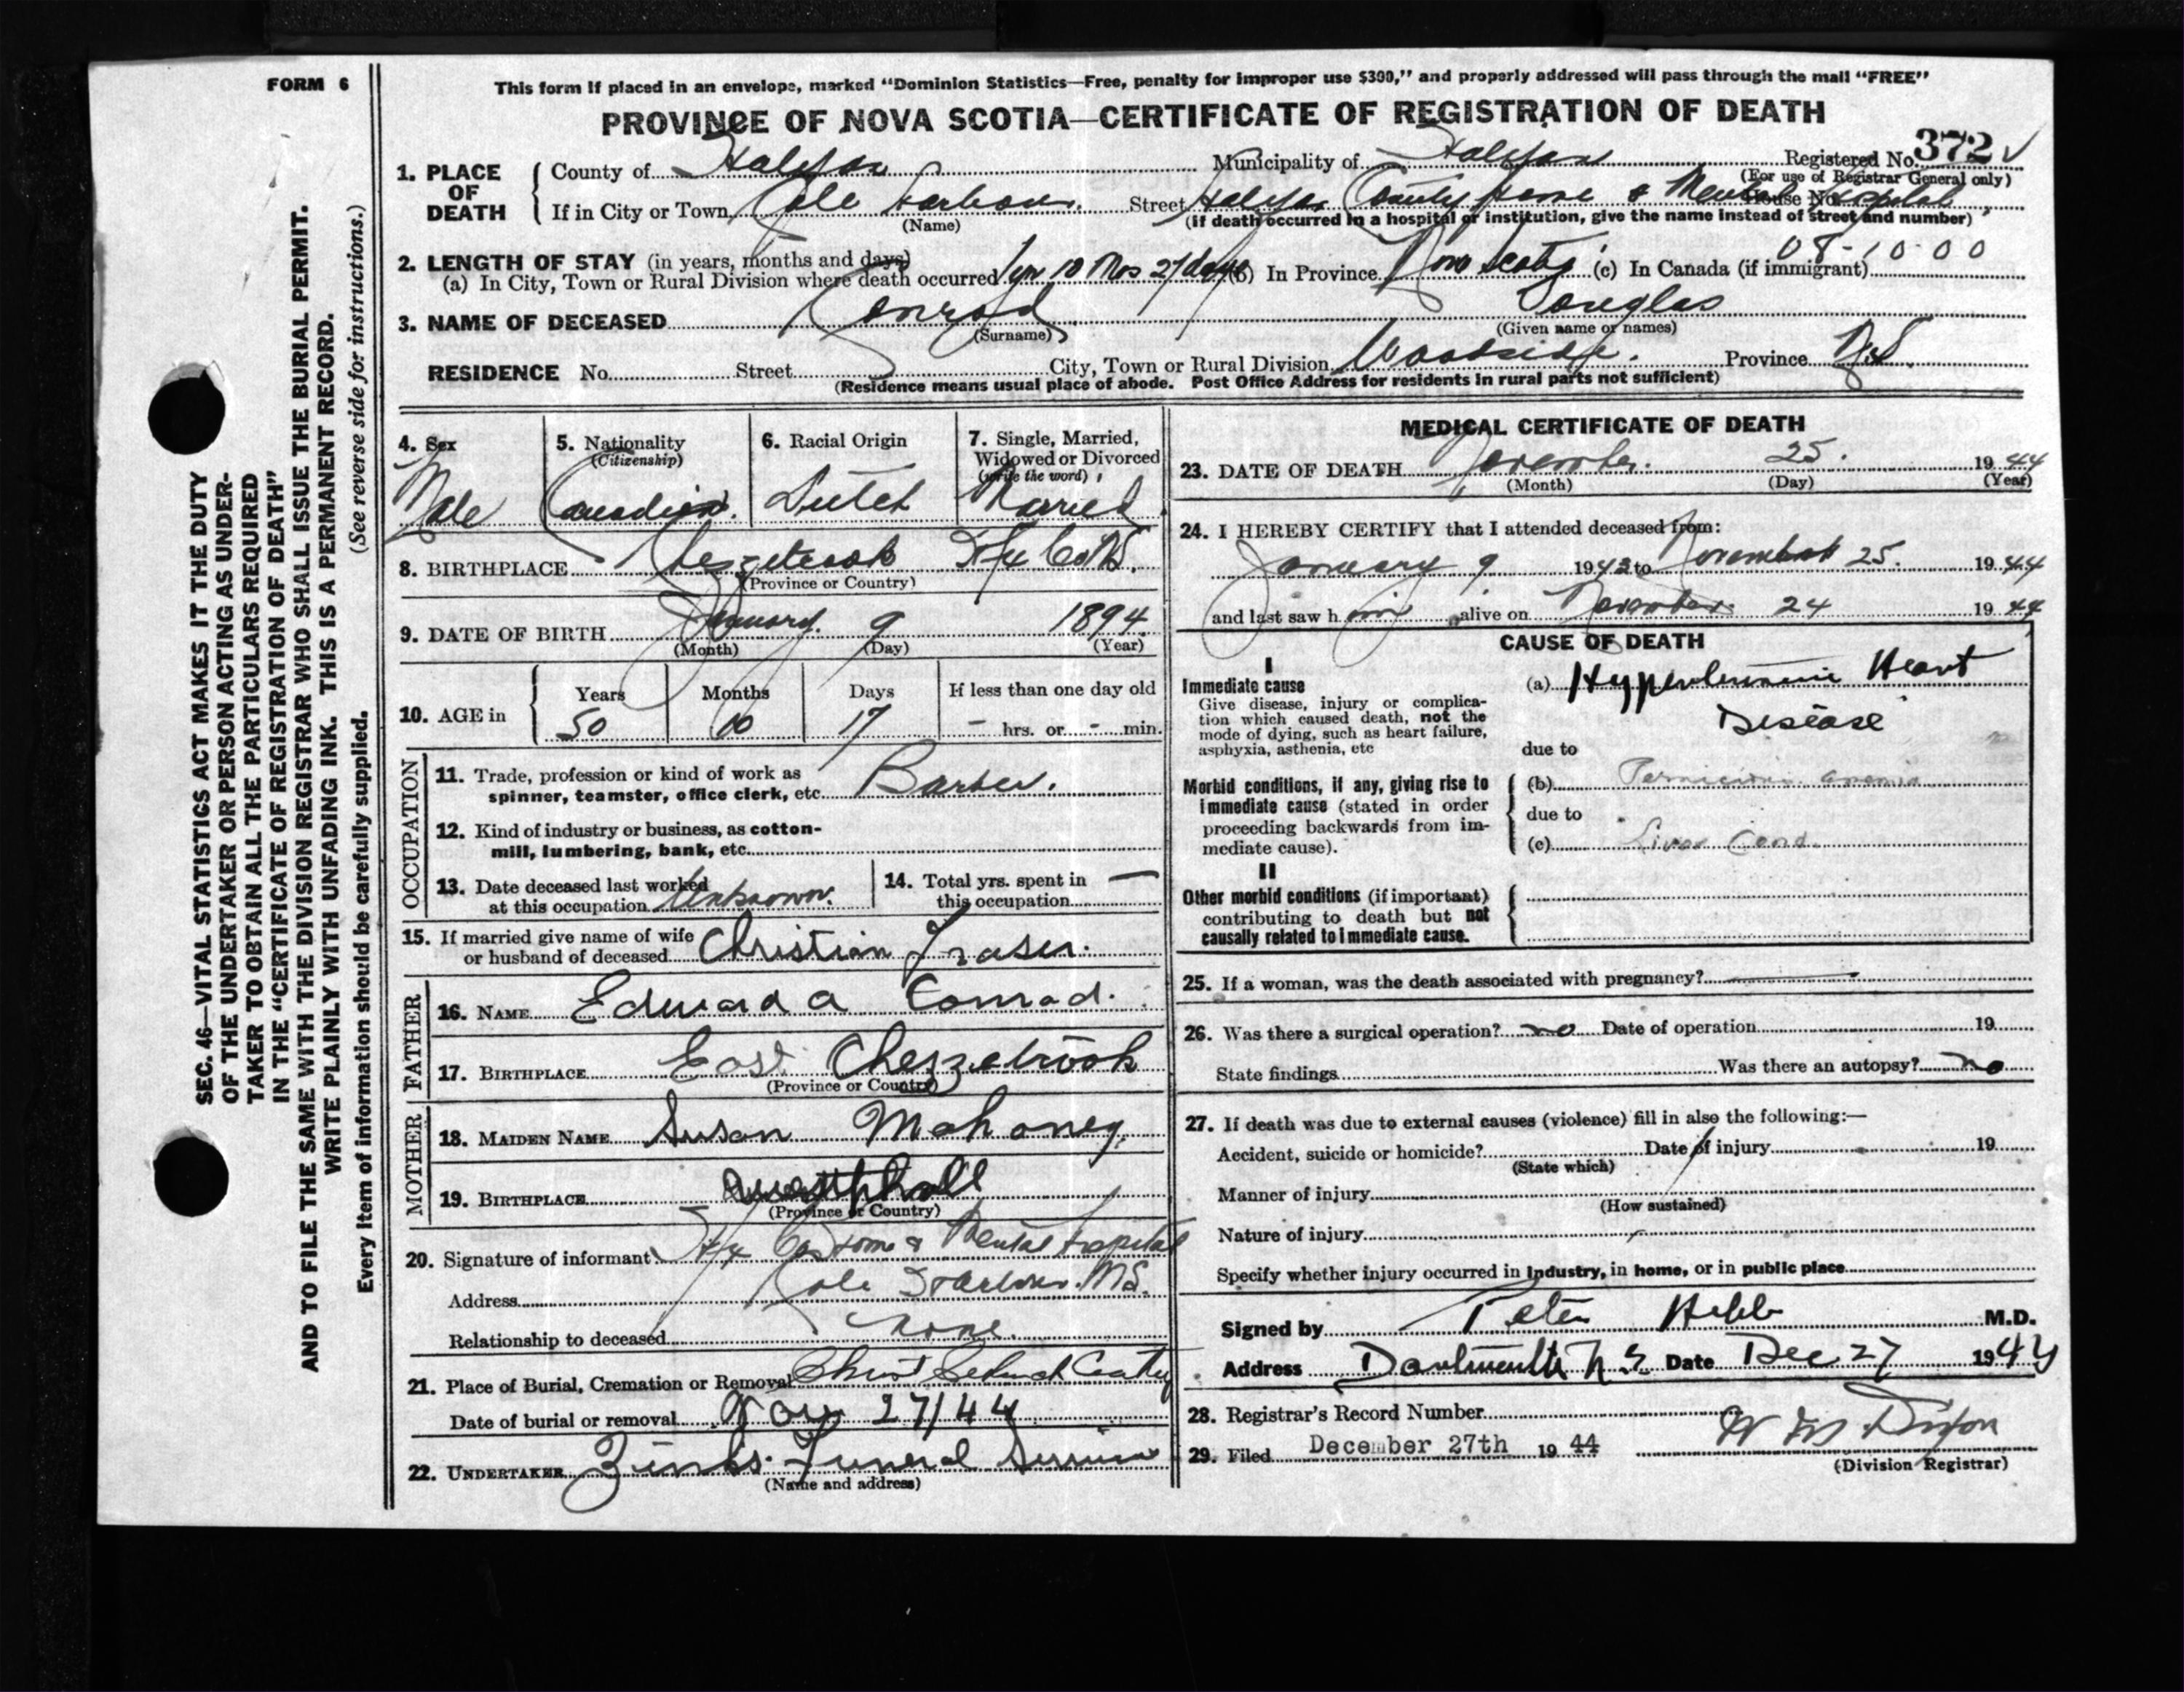 FORM 6
This form if placed in an envelope, marked "Dominion Statistics—Free, penalty for improper use $300," and properly addressed will pass through the mail "FREE"
PROVINCE OF NOVA SCOTIA—CERTIFICATE OF REGISTRATION OF DEATH
1. PLACE OF DEATH County of Halifax Municipality of Halifax Registered No. 372
(For use of Registrar General only)
If in City or Town Cole Harbour Street Halifax County Home & Mental Hospital House No.
(Name) (If death occurred in a hospital or institution, give the name instead of street and number)
2. LENGTH OF STAY (in years, months and days) 08-10-00
(a) In City, Town or Rural Division where death occurred 1 yr 10 Mos 27 days (b) In Province Nova Scotia (c) In Canada (if immigrant)
3. NAME OF DECEASED Conrad Douglas
(Surname) (Given name or names)
RESIDENCE No. Street City, Town or Rural Division Woodside. Province N.S.
(Residence means usual place of abode. Post Office Address for residents in rural parts not sufficient)
4. Sex 5. Nationality (Citizenship) 6. Racial Origin 7. Single, Married, Widowed or Divorced (write the word)
Male Canadian. Dutch Married
8. BIRTHPLACE Chezzetcook Hfx Co N.S.
(Province or Country)
9. DATE OF BIRTH January 9 1894
(Month) (Day) (Year)
10. AGE in Years Months Days If less than one day old
50 10 17 - hrs. or - min.
OCCUPATION
11. Trade, profession or kind of work as spinner, teamster, office clerk, etc. Barber.
12. Kind of industry or business, as cotton-mill, lumbering, bank, etc.
13. Date deceased last worked at this occupation Unknown.
14. Total yrs. spent in this occupation —
15. If married give name of wife or husband of deceased Christian Fraser.
FATHER
16. NAME Edward A Conrad.
17. BIRTHPLACE East Chezzetcook
(Province or Country)
MOTHER
18. MAIDEN NAME Susan Mahoney
19. BIRTHPLACE
(Province or Country)
20. Signature of informant Hfx Co Home & Mental Hospital
Address Cole Harbour. N.S.
Relationship to deceased None.
21. Place of Burial, Cremation or Removal Christ Church
Date of burial or removal Nov 27/44
22. UNDERTAKER Zinks Funeral Service
(Name and address)
MEDICAL CERTIFICATE OF DEATH
23. DATE OF DEATH November 25. 1944
(Month) (Day) (Year)
24. I HEREBY CERTIFY that I attended deceased from:
January 9 1943 to November 25. 1944
and last saw him alive on November 24 1944
CAUSE OF DEATH
I
Immediate cause
Give disease, injury or complication which caused death, not the mode of dying, such as heart failure, asphyxia, asthenia, etc
(a) Heart
Disease
due to
Morbid conditions, if any, giving rise to immediate cause (stated in order proceeding backwards from immediate cause).
(b) Pernicious anemia
due to
(c) Liver Cond.
II
Other morbid conditions (if important) contributing to death but not causally related to immediate cause.
25. If a woman, was the death associated with pregnancy?
26. Was there a surgical operation? no Date of operation 19
State findings Was there an autopsy? no
27. If death was due to external causes (violence) fill in also the following:—
Accident, suicide or homicide? Date of injury 19
(State which)
Manner of injury
(How sustained)
Nature of injury
Specify whether injury occurred in industry, in home, or in public place
Signed by Peter Hebb M.D.
Address Dartmouth N S Date Dec 27 1944
28. Registrar's Record Number
29. Filed December 27th 1944 W M Dixon
(Division Registrar)
SEC. 46—VITAL STATISTICS ACT MAKES IT THE DUTY
OF THE UNDERTAKER OR PERSON ACTING AS UNDER-
TAKER TO OBTAIN ALL THE PARTICULARS REQUIRED
IN THE "CERTIFICATE OF REGISTRATION OF DEATH"
AND TO FILE THE SAME WITH THE DIVISION REGISTRAR WHO SHALL ISSUE THE BURIAL PERMIT.
WRITE PLAINLY WITH UNFADING INK. THIS IS A PERMANENT RECORD.
Every item of information should be carefully supplied. (See reverse side for instructions.)